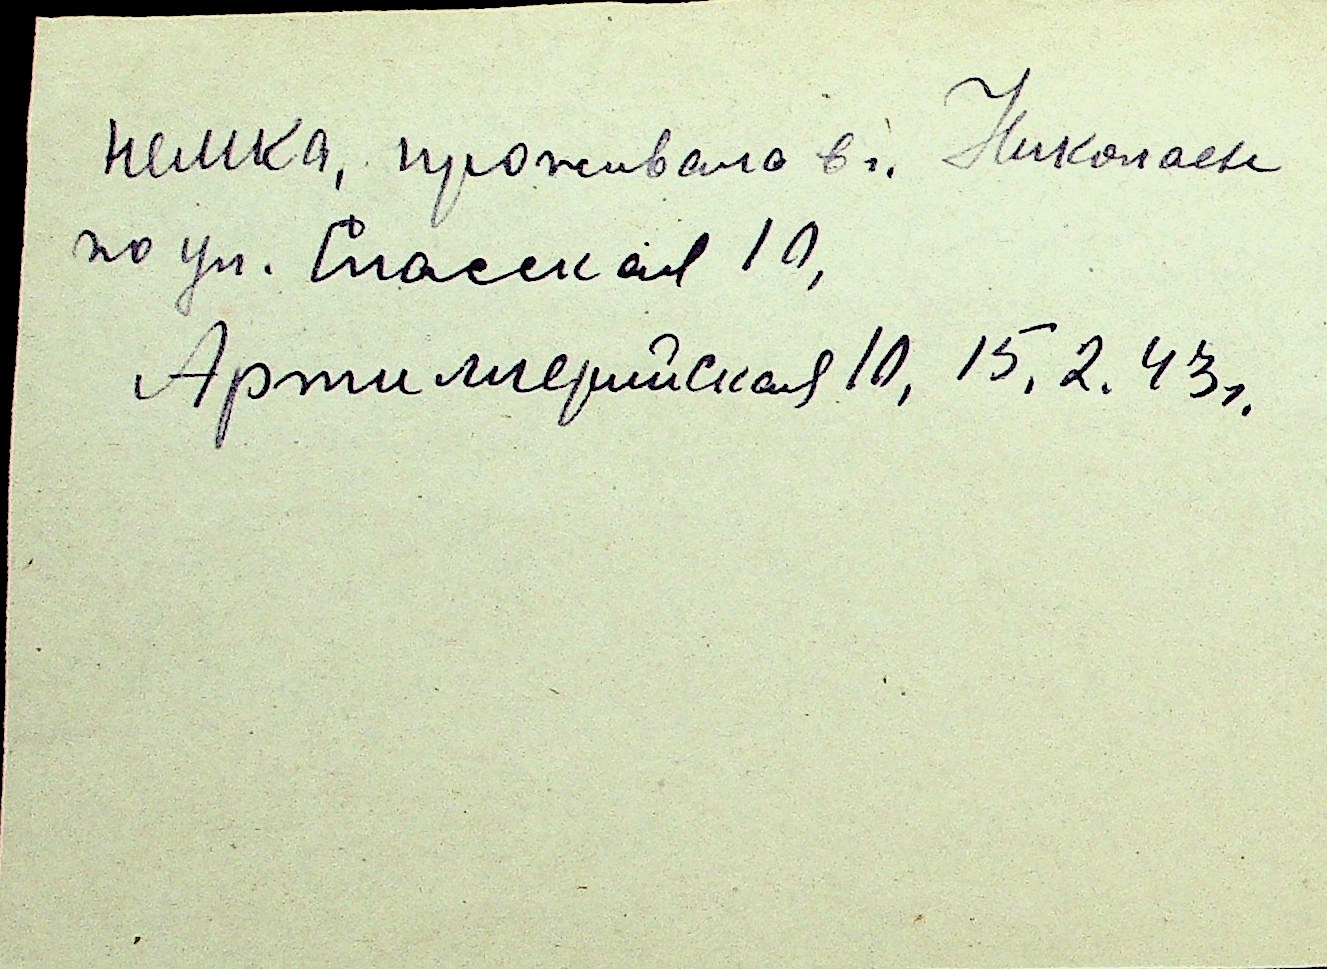 немка, проживала в г. Николаев
по ул. Спасская 10,
Артиллерийская 10, 15.2.43г.